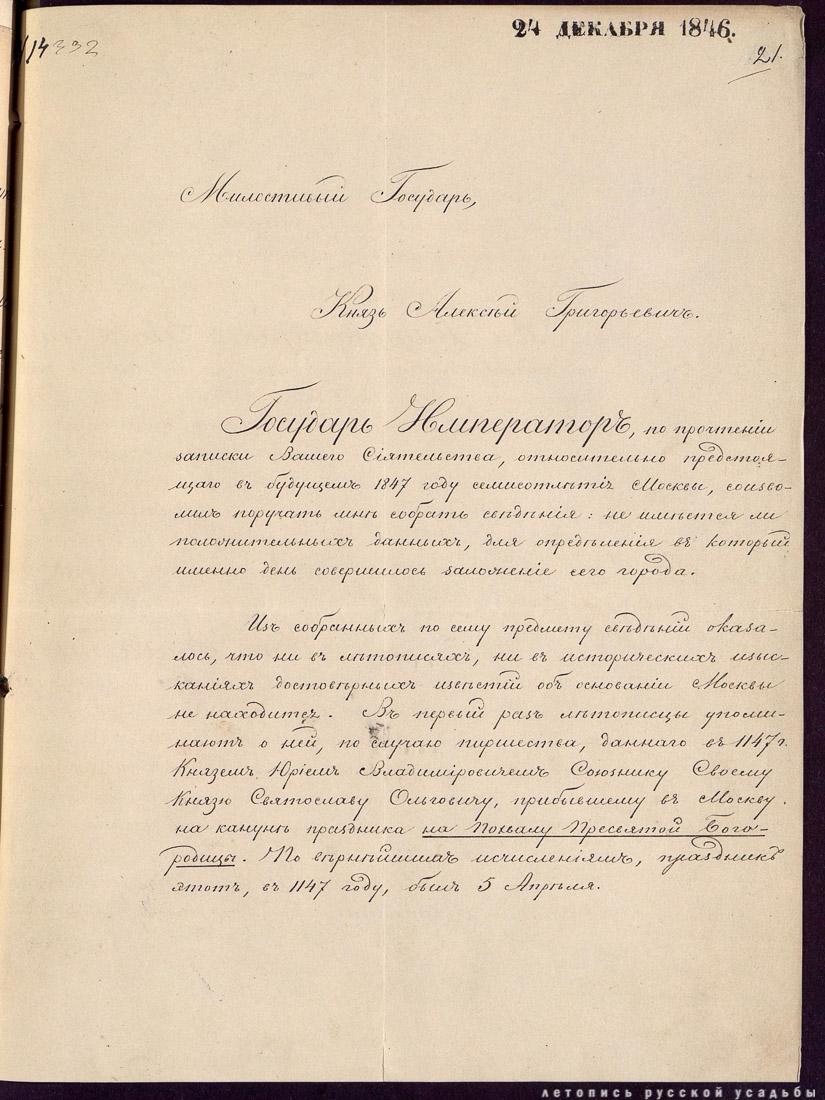 24 ДЕКАБРЯ 1846.
14332
21.
Милостивый Государь,
Князь Алексѣй Григорьевичъ.
Государь Императоръ, по прочтеніи
записки Вашего Сіятельства, относительно предстоя-
щаго въ будущемъ 1847 году семисотлѣтія Москвы, соизво-
лилъ поручать мнѣ собрать свѣдѣнія: не имѣется ли
положительныхъ данныхъ, для опредѣленія въ который
именно день совершилось заложеніе сего города.
Изъ собранныхъ по сему предмету свѣдѣній оказа-
лось, что ни въ лѣтописяхъ, ни въ историческихъ изыс-
каніяхъ достовѣрныхъ извѣстій объ основаніи Москвы
не находится. Въ первый разъ лѣтописцы упоми-
наютъ о ней, по случаю пиршества, даннаго въ 1147 г.
Княземъ Юріемъ Владиміровичемъ Союзнику Своему
Князю Святославу Ольговичу, прибывшему въ Москву
на канунѣ праздника на Похвалу Пресвятой Бого-
родицы. По вѣрнѣйшимъ исчисленіямъ, праздникъ
этотъ, въ 1147 году, былъ 5 Апрѣля.
летопись русской усадьбы